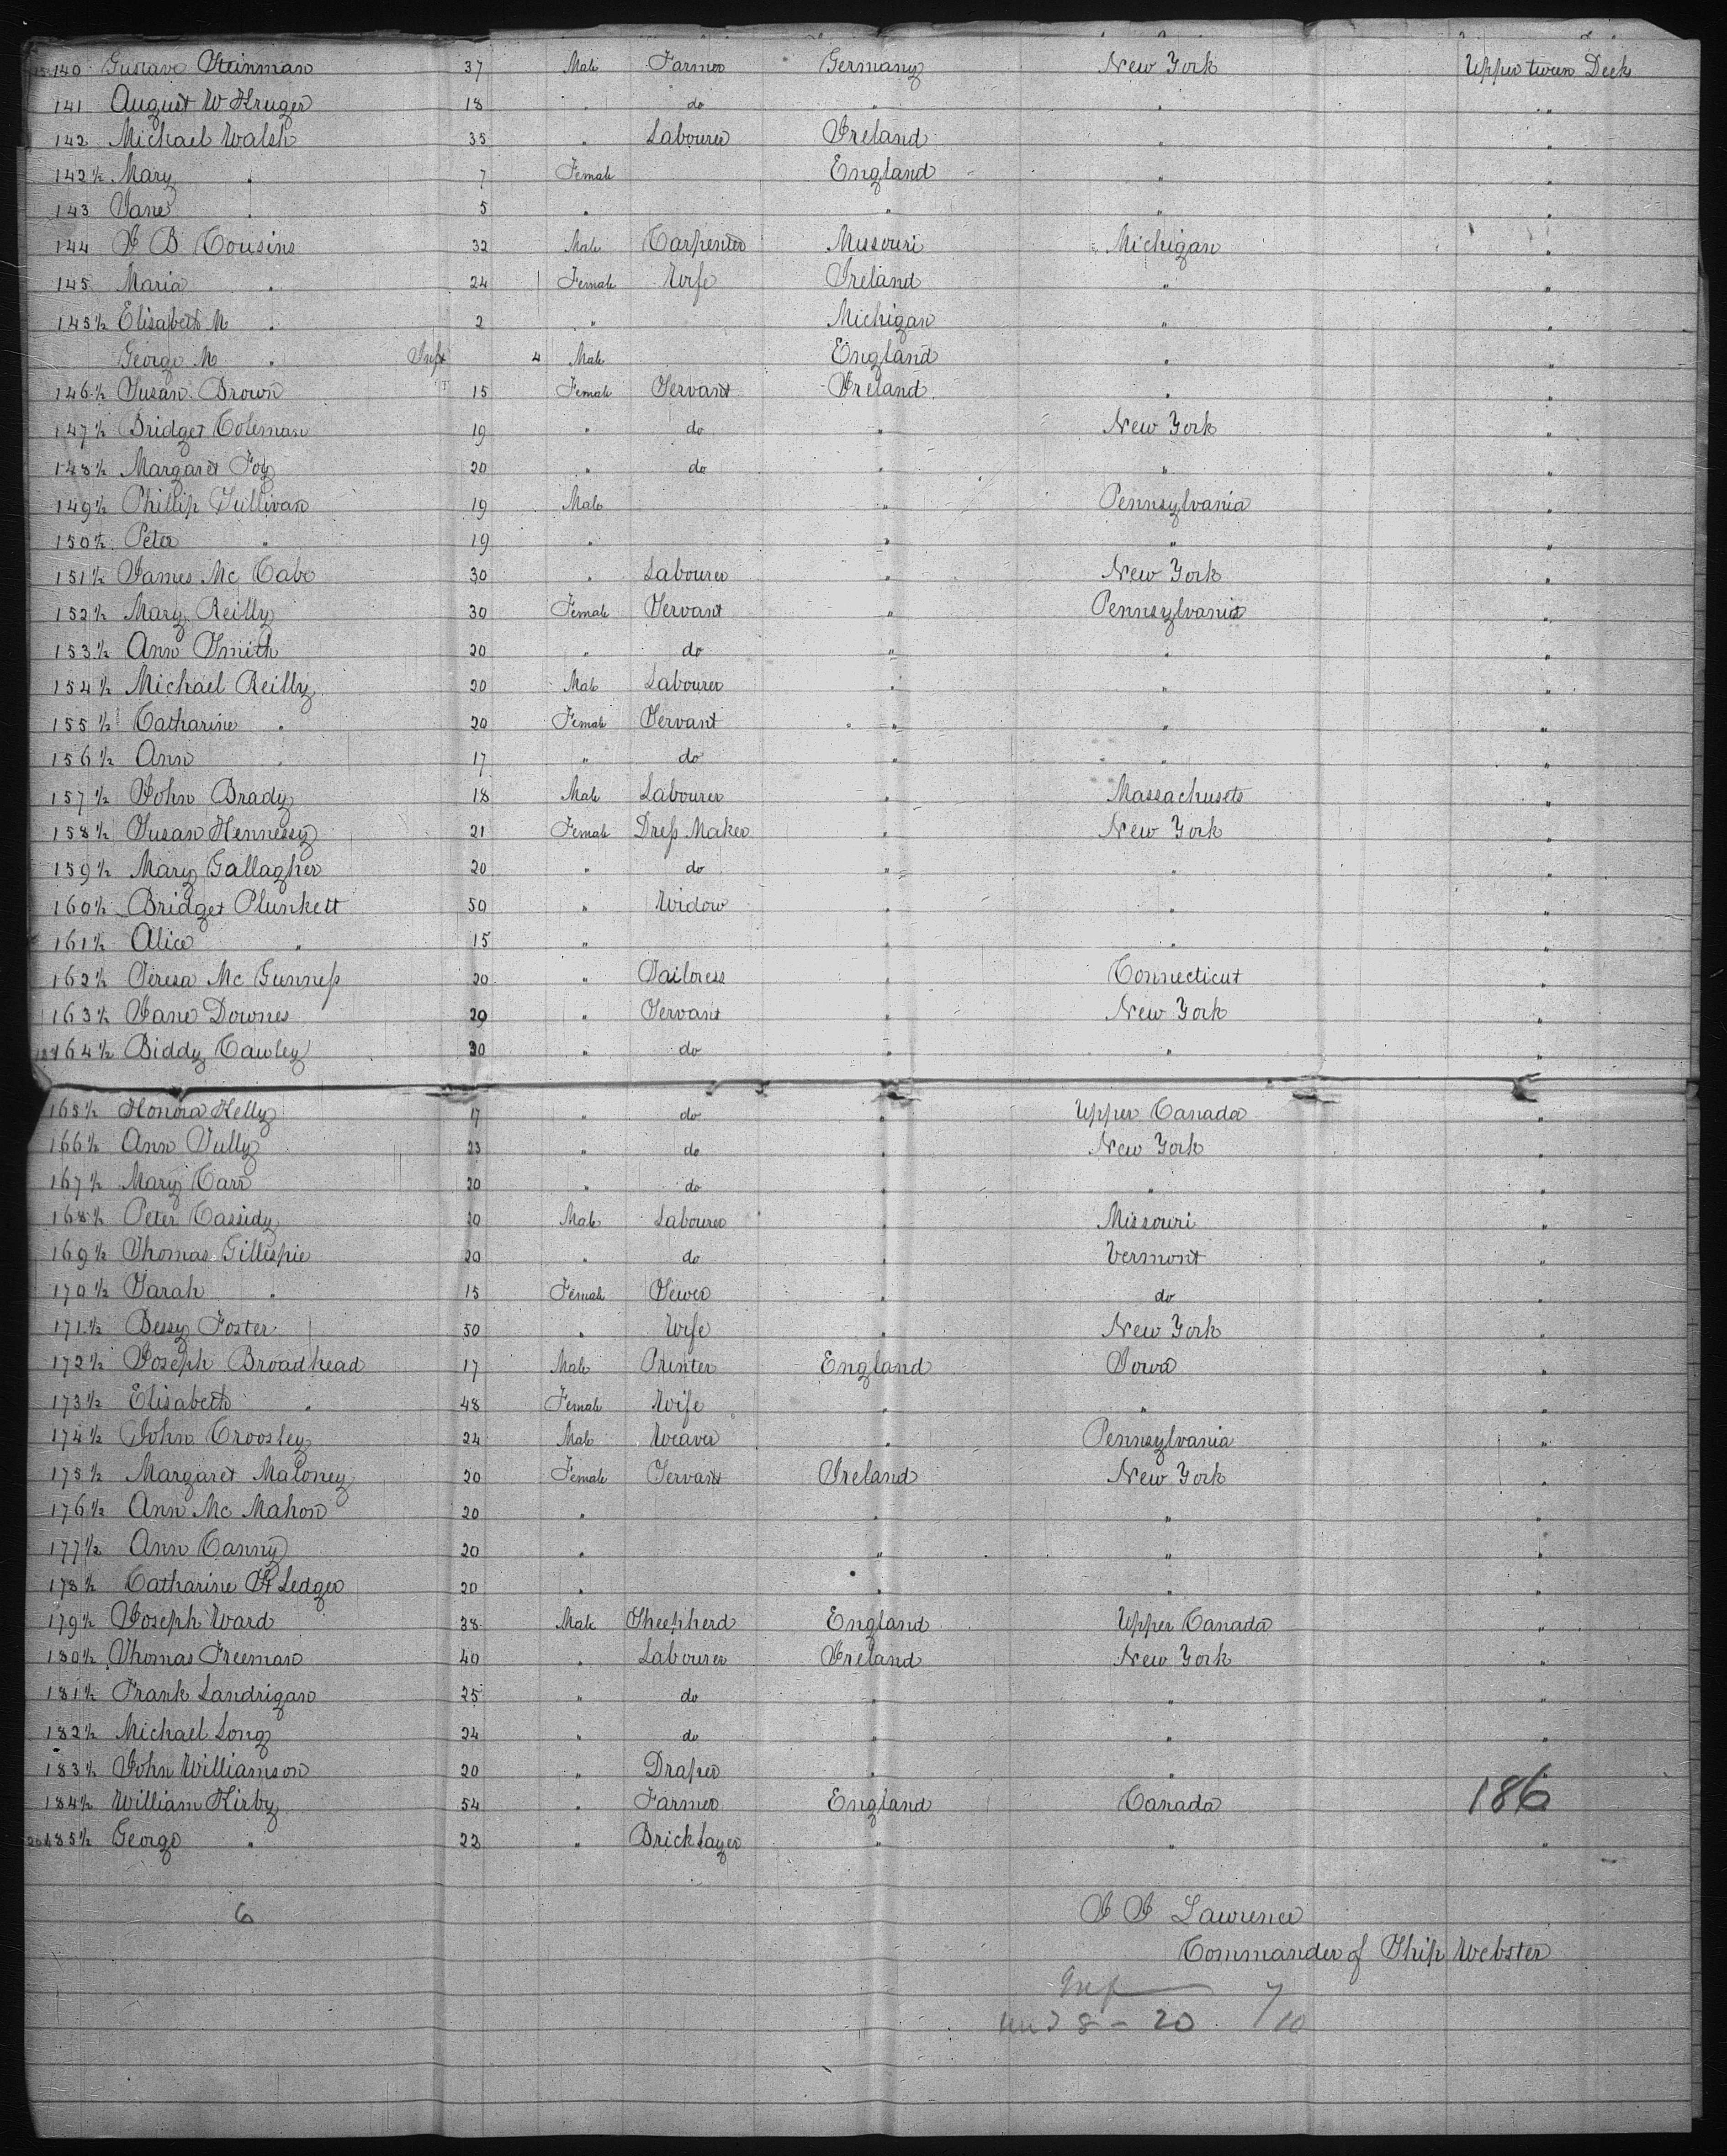 140 Gustave Steinman 37 Male Farmer Germany New York Upper tween Decks
141 August W Kruger 18 " do " " "
142 Michael Walsh 35 " Labourer Ireland " "
142½ Mary " 7 Female England " "
143 Jane " 5 " " " "
144 J B Cousins 32 Male Carpenter Missouri Michigan "
145 Maria " 24 Female Wife Ireland " "
145½ Elisabeth M " 2 " Michigan " "
George M " Inft 4 Male England " "
146½ Susan Brown 15 Female Servant Ireland " "
147½ Bridget Coleman 19 " do " New York "
148½ Margaret Foy 20 " do " " "
149½ Phillip Sullivan 19 Male " Pennsylvania "
150½ Peter " 19 " " " "
151½ James Mc Cabe 30 " Labourer " New York "
152½ Mary Reilly 30 Female Servant " Pennsylvania "
153½ Ann Smith 20 " do " " "
154½ Michael Reilly 20 Male Labourer " " "
155½ Catharine " 20 Female Servant " " "
156½ Ann " 17 " do " " "
157½ John Brady 18 Male Labourer " Massachusets "
158½ Susan Hennessy 21 Female Dress Maker " New York "
159½ Mary Gallagher 20 " do " " "
160½ Bridget Plunkett 50 " Widow " " "
161½ Alice " 15 " " " "
162½ Teresa Mc Gunness 20 " Tailoress " Connecticut "
163½ Jane Downes 29 " Servant " New York "
164½ Biddy Cawley 30 " do " " "
165½ Honora Kelly 17 " do " Upper Canada "
166½ Ann Tully 23 " do " New York "
167½ Mary Carr 20 " do " " "
168½ Peter Cassidy 20 Male Labourer " Missouri "
169½ Thomas Gillespie 20 " do " Vermont "
170½ Sarah " 15 Female Sewer " do "
171½ Bessy Foster 50 " Wife " New York "
172½ Joseph Broadhead 17 Male Printer England Iowa "
173½ Elisabeth " 48 Female Wife " " "
174½ John Croosley 24 Male Weaver " Pennsylvania "
175½ Margaret Maloney 20 Female Servant Ireland New York "
176½ Ann Mc Mahon 20 " " " "
177½ Ann Canny 20 " " " "
178½ Catharine St Ledger 20 " " " "
179½ Joseph Ward 38 Male Sheepherd England Upper Canada "
180½ Thomas Freeman 40 " Labourer Ireland New York "
181½ Frank Landrigan 25 " do " " "
182½ Michael Long 24 " do " " "
183½ John Williamson 20 " Draper " " "
184½ William Kirby 54 " Farmer England Canada 186
185½ George " 22 " Bricklayer " " "
6
J J Lawrence
Commander of Ship Webster
8 - 20 7/10